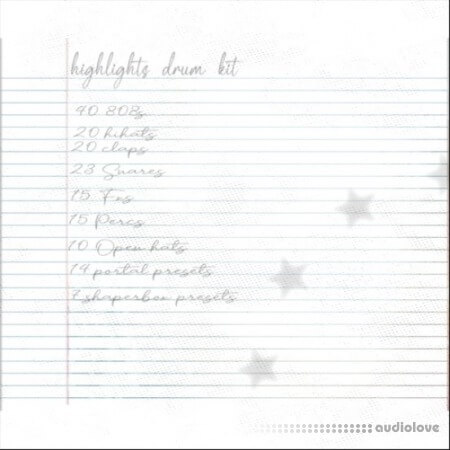 highlights drum kit
40 808s
20 hihats
20 claps
23 Snares
15 Fxs
15 Percs
10 Open hats
19 portal presets
7 shaperbox presets
audiolove